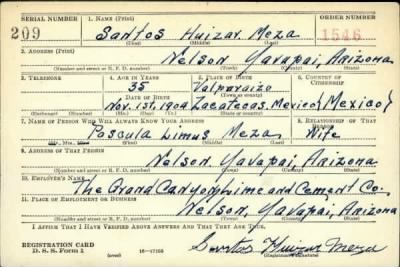 SERIAL NUMBER 1. NAME (Print) ORDER NUMBER
209 Santos Huizar Meza 1546
(First) (Middle) (Last)
2. ADDRESS (Print)
Nelson, Yavapai, Arizona
(Number and street or R. F. D. number) (Town) (County) (State)
3. TELEPHONE 4. AGE IN YEARS 5. PLACE OF BIRTH 6. COUNTRY OF CITIZENSHIP
35 Valparaizo
DATE OF BIRTH (Town or county)
Nov. 1st, 1904 Zacatecas, Mexico (Mexico)
(Exchange) (Number) (Mo.) (Day) (Yr.) (State or country)
7. NAME OF PERSON WHO WILL ALWAYS KNOW YOUR ADDRESS 8. RELATIONSHIP OF THAT PERSON
Pascula Limus Meza Wife
(Mr., Mrs., Miss) (First) (Middle) (Last)
9. ADDRESS OF THAT PERSON
Nelson, Yavapai, Arizona
(Number and street or R. F. D. number) (Town) (County) (State)
10. EMPLOYER'S NAME
The Grand Canyon Lime and Cement Co.
11. PLACE OF EMPLOYMENT OR BUSINESS
Nelson, Yavapai, Arizona
(Number and street or R. F. D. number) (Town) (County) (State)
I AFFIRM THAT I HAVE VERIFIED ABOVE ANSWERS AND THAT THEY ARE TRUE.
REGISTRATION CARD
D. S. S. Form 1 16-17105 Santos Huizar Meza
(Registrant's signature)